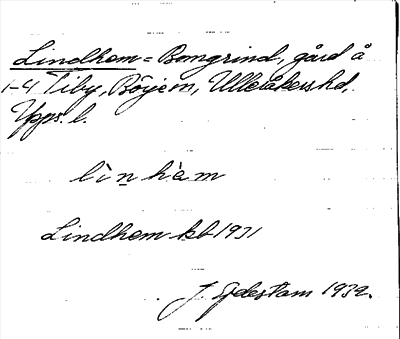 Lindhem = Bomgrind, gård å
1-4 Tiby, Börje sn, Ulleråkers hd,
Upps. l.
lìn hèm
Lindhem kb 1931
J. Edestam 1932.